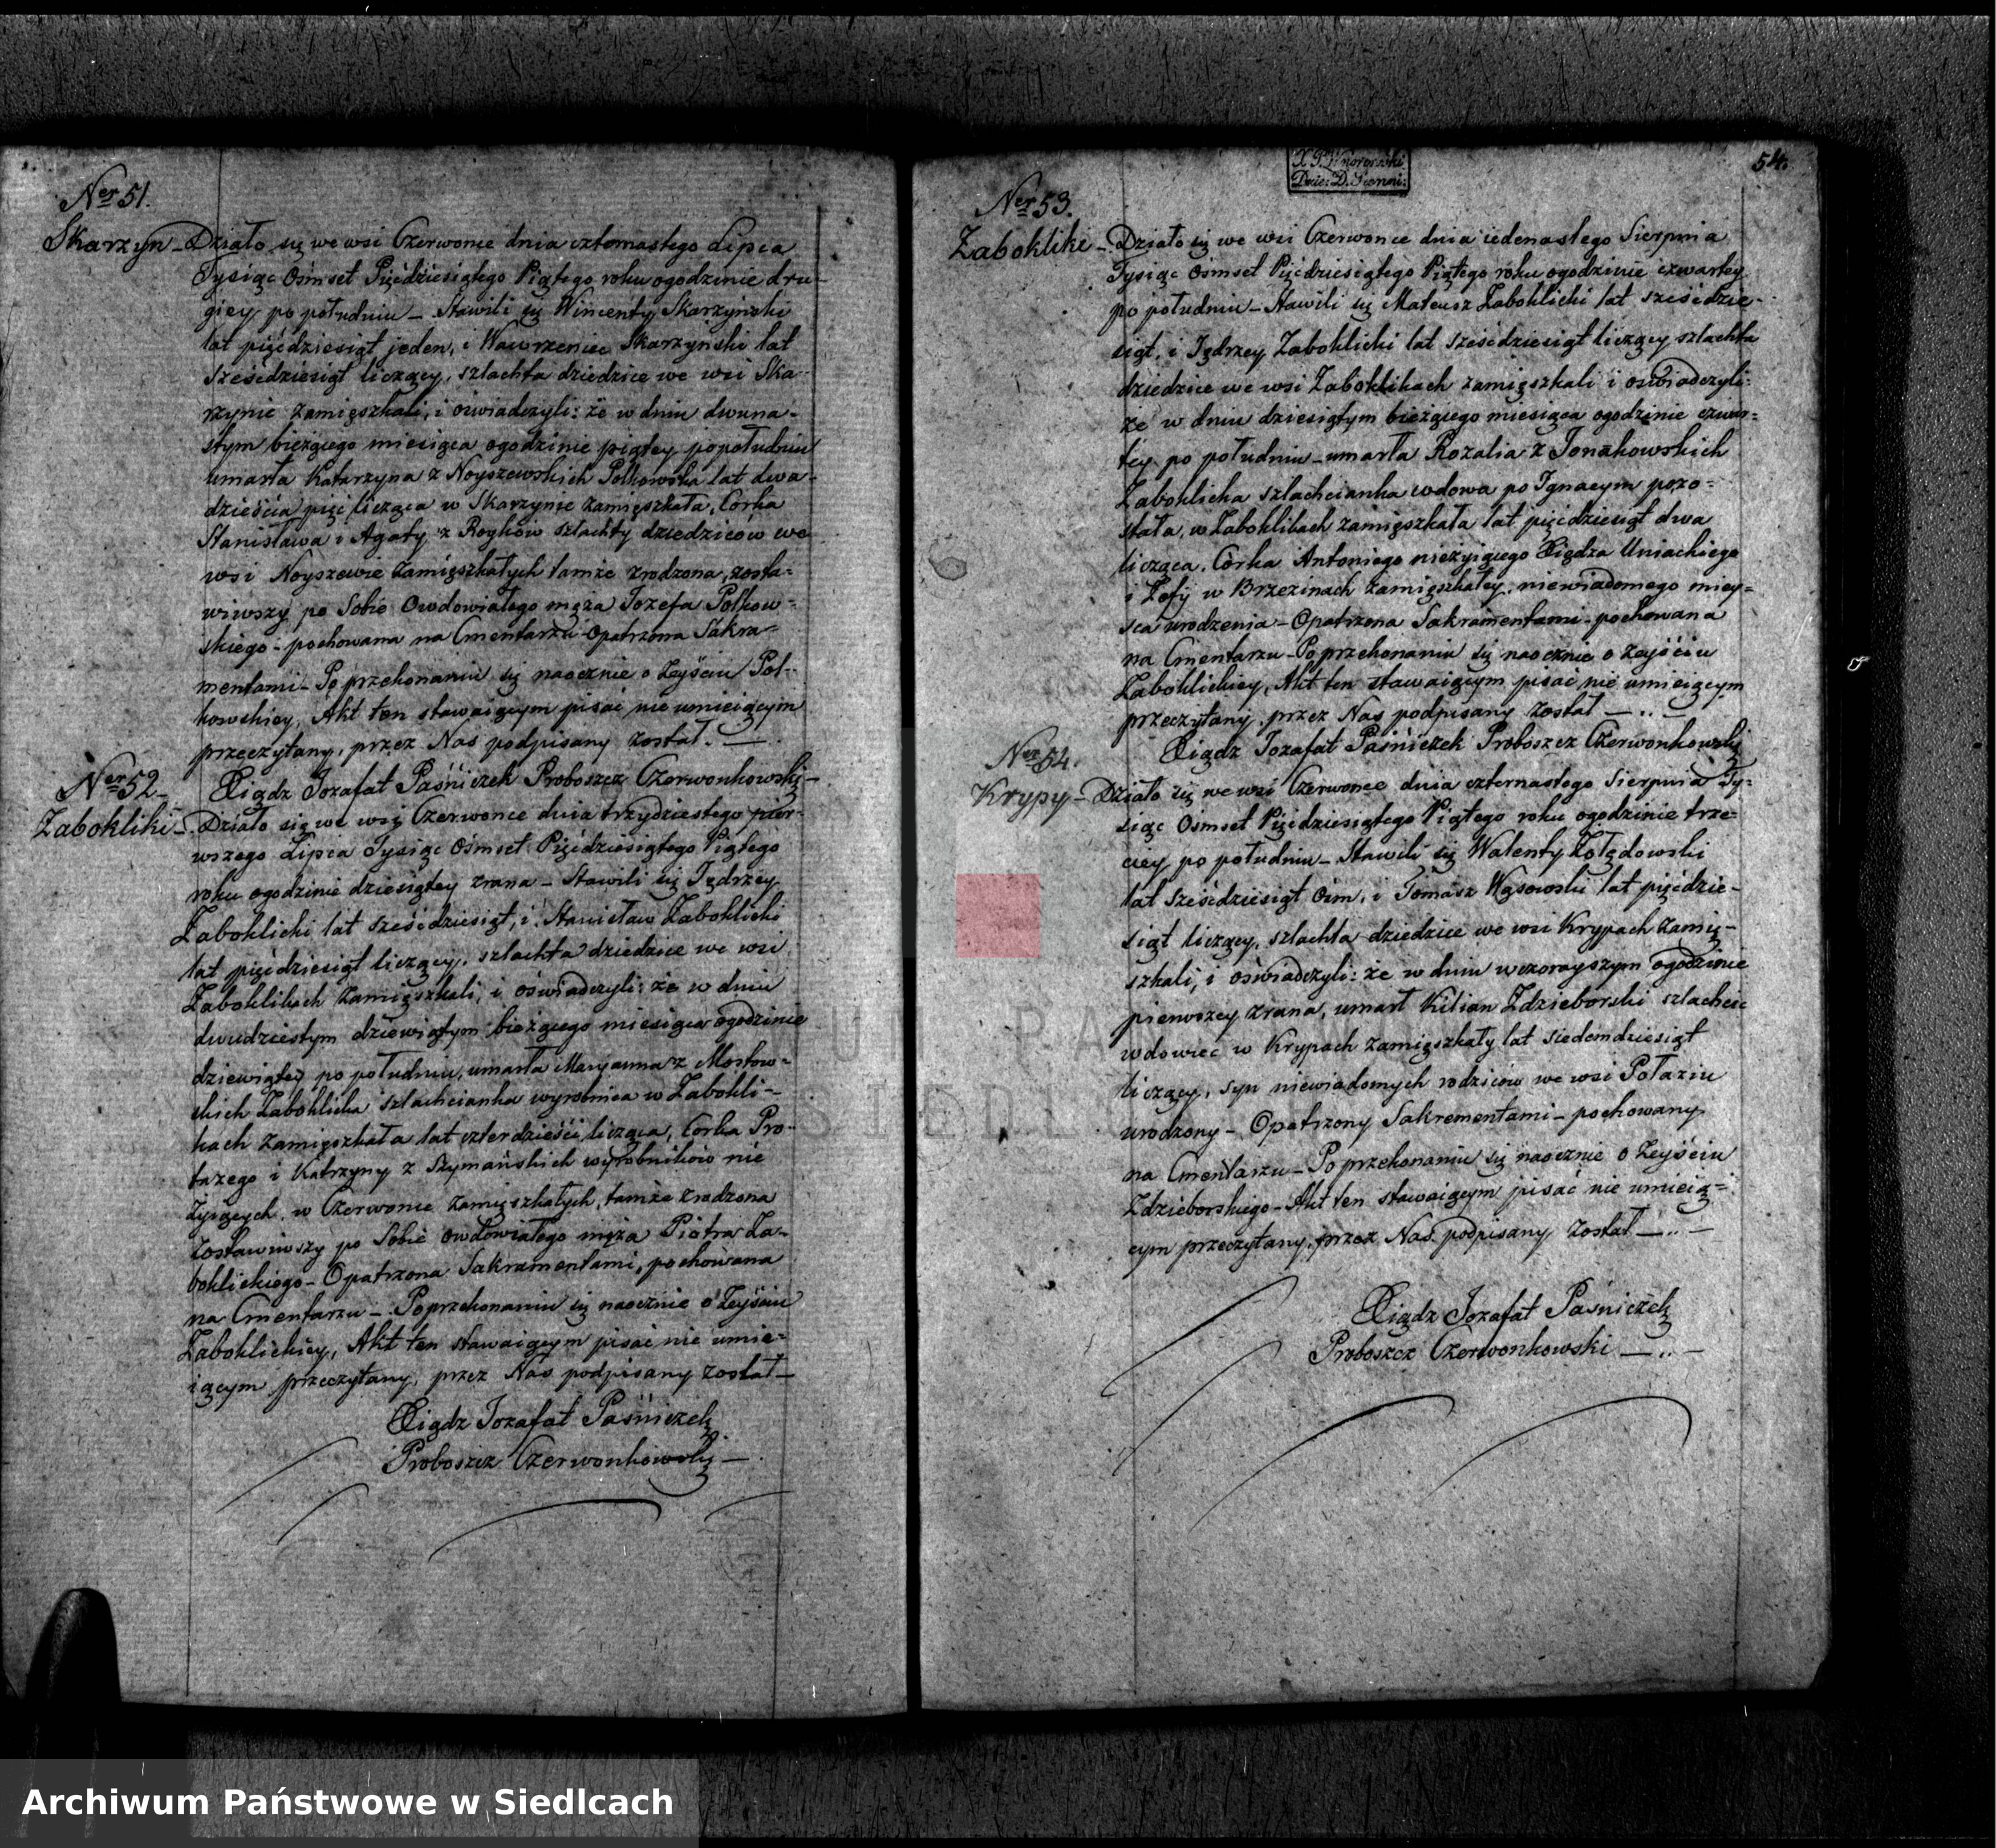 Ner 51.
Skarzyn - Działo się we wsi Czerwonce dnia czternastego Lipca
Tysiąc Ośmset Pięćdziesiątego Piątego roku ogodzinie dru-
giey po południu - Stawili się Wincenty Skarzyński
lat pięćdziesiąt jeden, i Wawrzeniec Skarzyński lat
sześćdziesiąt liczący, szlachta dziedzice we wsi Ska-
rzynie zamięszkali, i oświadczyli: że w dniu dwuna-
stym bieżącego miesiąca ogodzinie piątey popołudniu
umarła Katarzyna z Noyszewskich Polkowska lat dwa-
dzieścia pięć licząca w Skarzynie zamięszkała, Corka
Stanisława i Agaty z Roykow szlachty dziedziców we
wsi Noyszewie zamięszkałych tamże zrodzona, zosta-
wiwszy po Sobie Owdowiałego męża Jozefa Polkow-
skiego - pochowana na Cmentarzu Opatrzona Sakra-
mentami - Po przekonaniu się naocznie o Zeyściu Pol-
kowskiey, Akt ten stawaiącym pisać nie umieiącym
przeczytany, przez Nas podpisany został. —
Xiądz Jozafat Paśniczek Proboszcz Czerwonkowski -
Ner 52 -
Zabokliki - Działo się we wsi Czerwonce dnia trzydziestego pier-
wszego Lipca Tysiąc Ośmset Pięćdziesiątego Piątego
roku ogodzinie dziesiątey zrana - Stawili się Jędrzey
Zaboklicki lat sześćdziesiąt, i Stanisław Zaboklicki
lat pięćdziesiąt liczący, szlachta dziedzice we wsi
Zaboklikach zamięszkali, i oświadczyli: że w dniu
dwudziestym dziewiątym bieżącego miesiąca ogodzinie
dziewiątey po południu, umarła Maryanna z Mostow-
skich Zaboklicka szlachcianka wyrobnica w Zabokli-
kach zamięszkała lat czterdzieści licząca, Corka Pro-
tazego i Katrzyny z Szymańskich wyrobników nie
żyiących w Czerwonce zamięszkałych, tamże zrodzona
zostawiwszy po Sobie owdowiałego męża Piotra Za-
boklickiego - Opatrzona Sakramentami, pochowana
na Cmentarzu - Poprzekonaniu się naocznie o Zeyściu
Zaboklickiey, Akt ten stawaiącym pisać nie umie-
iącym przeczytany, przez Nas podpisany został —
Xiądz Jozafat Paśniczek
Proboszcz Czerwonkowski —
54.
Ner 53.
Zabokliki - Działo się we wsi Czerwonce dnia iedenastego Sierpnia
Tysiąc Ośmset Pięćdziesiątego Piątego roku ogodzinie czwartey
po południu - Stawili się Mateusz Zaboklicki lat sześćdzie-
siąt, i Jędrzey Zaboklicki lat sześćdziesiąt liczący szlachta
dziedzice we wsi Zaboklikach zamięszkali i oświadczyli:
że w dniu dziesiątym bieżącego miesiąca ogodzinie czwar-
tey po południu - umarła Rozalia z Jonakowskich
Zaboklicka szlachcianka wdowa po Ignacym pozo-
stała, w Zaboklikach zamięszkała lat pięćdziesiąt dwa
licząca, Córka Antoniego nieżyiącego Xiędza Uniackiego
i Zofij w Brzezinach zamięszkałey, niewiadomego miey-
sca urodzenia - Opatrzona Sakramentami - pochowana
na Cmentarzu - Poprzekonaniu się naocznie o zeyściu
Zaboklickiey, Akt ten stawaiącym pisać nie umieiącym
przeczytany, przez Nas podpisany został —..—
Xiądz Jozafat Paśniczek Proboszcz Czerwonkowski
Ner 54.
Krypy - Działo się we wsi Czerwonce dnia czternastego Sierpnia Ty-
siąc Ośmset Pięćdziesiątego Piątego roku ogodzinie trze-
ciey po południu - Stawili się Walenty Żołędowski
lat sześćdziesiąt Ośm, i Tomasz Wąsowski lat pięćdzie-
siąt liczący, szlachta dziedzice we wsi Krypach zamię-
szkali, i oświadczyli: że w dniu wczorayszym ogodzinie
pierwszey zrana, umarł Kilian Zdzieborski szlachcic
wdowiec w Krypach zamięszkały lat siedemdziesiąt
liczący, syn niewiadomych rodziców we wsi Połaziu
urodzony - Opatrzony Sakrementami - pochowany
na Cmentarzu - Po przekonaniu się naocznie o Zeyściu
Zdzieborskiego - Akt ten stawaiącym pisać nie umieią-
cym przeczytany, przez Nas podpisany został —..—
Xiądz Jozafat Paśniczek
Proboszcz Czerwonkowski —..—
Archiwum Państwowe w Siedlcach